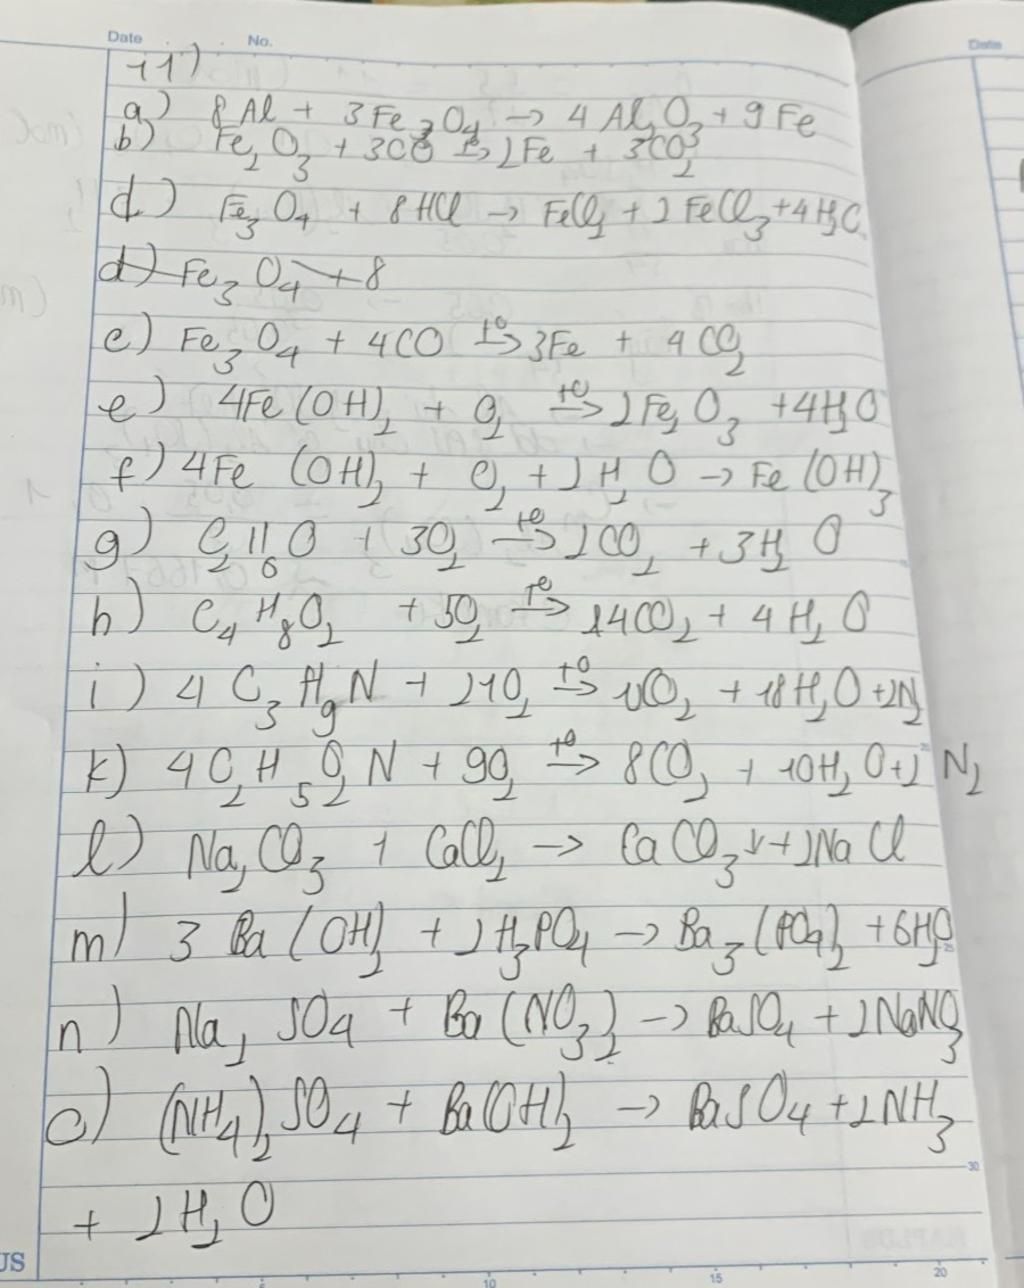 Date No.
11)
a) 8Al + 3Fe₃O₄ → 4Al₂O₃ + 9Fe
b) Fe₂O₃ + 3CO t°→ 2Fe + 3CO₂
d) Fe₃O₄ + 8HCl → FeCl₂ + 2FeCl₃ + 4H₂O
d) Fe₃O₄ + 8
c) Fe₃O₄ + 4CO t°→ 3Fe + 4CO₂
e) 4Fe(OH)₂ + O₂ t°→ 2Fe₂O₃ + 4H₂O
f) 4Fe(OH)₂ + O₂ + 2H₂O → Fe(OH)₃
g) C₂H₆O + 3O₂ t°→ 2CO₂ + 3H₂O
h) C₄H₈O₂ + 5O₂ t°→ 4CO₂ + 4H₂O
i) 4C₃H₉N + 21O₂ t°→ 12CO₂ + 18H₂O + 2N₂
k) 4C₂H₅O₂N + 9O₂ t°→ 8CO₂ + 10H₂O + 2N₂
l) Na₂CO₃ + CaCl₂ → CaCO₃↓ + 2NaCl
m) 3Ba(OH)₂ + 2H₃PO₄ → Ba₃(PO₄)₂ + 6H₂O
n) Na₂SO₄ + Ba(NO₃)₂ → BaSO₄ + 2NaNO₃
o) (NH₄)₂SO₄ + Ba(OH)₂ → BaSO₄ + 2NH₃
+ 2H₂O
US 10 15 20
25
30
Date